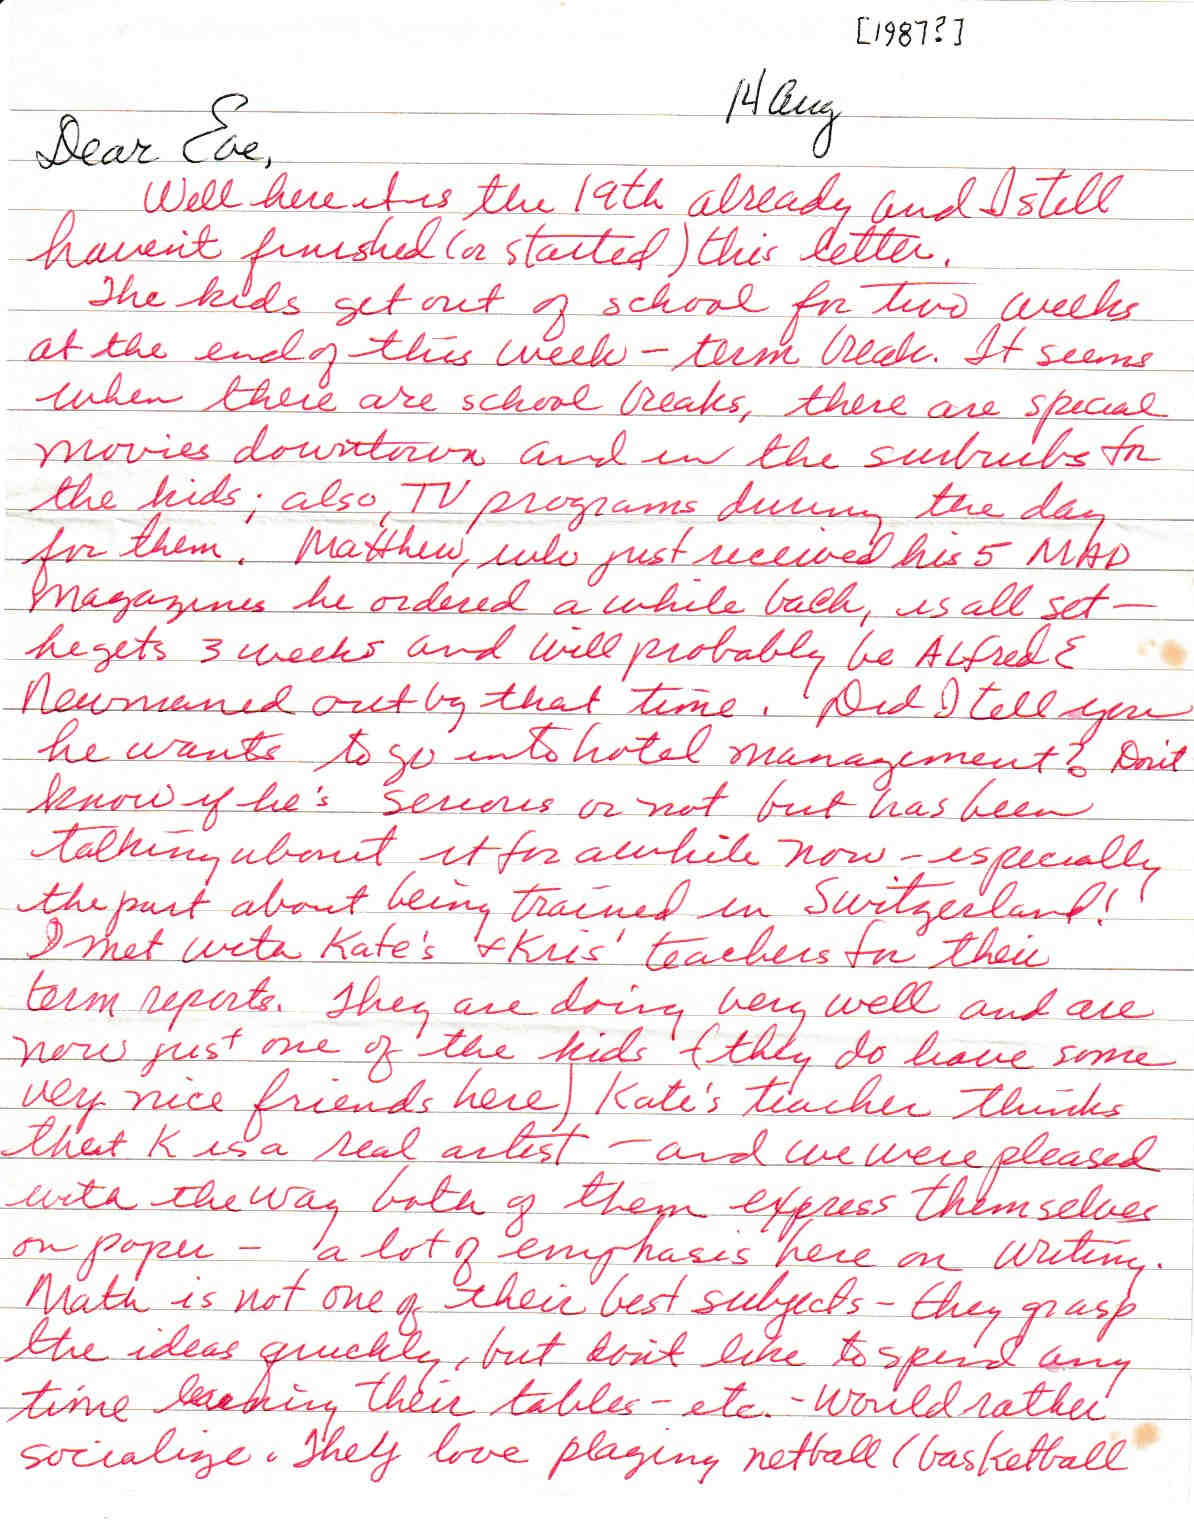 [1987?]
14 Aug
Dear Eve,
Well here it is the 19th already and I still
haven't finished (or started) this letter.
The kids get out of school for two weeks
at the end of this week - term break. It seems
when there are school breaks, there are special
movies downtown and in the surburbs for
the kids; also, TV programs during the day
for them. Matthew, who just received his 5 MAD
Magazines he ordered a while back, is all set -
he gets 3 weeks and will probably be Alfred E
Newmaned out by that time. Did I tell you
he wants to go into hotel management? Don't
know if he's serious or not but has been
talking about it for awhile now - especially
the part about being trained in Switzerland!
I met with Kate's & Kris' teachers for their
term reports. They are doing very well and are
now just one of the kids (they do have some
very nice friends here) Kate's teacher thinks
that K is a real artist - and we were pleased
with the way both of them express themselves
on paper - a lot of emphasis here on writing.
Math is not one of their best subjects - they grasp
the ideas quickly, but don't like to spend any
time learning their tables - etc. - would rather
socialize. They love playing netball (basketball